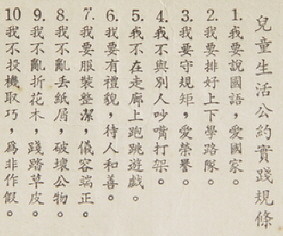 兒童生活公約實踐規條
1. 我要說國語，愛國家。
2. 我要排好上下學路隊。
3. 我要守規矩，愛榮譽。
4. 我不與別人吵嘴打架。
5. 我不在走廊上跑跳遊戲。
6. 我要有禮貌，待人和善。
7. 我要服裝整潔，儀容端正。
8. 我不亂丟紙屑，破壞公物。
9. 我不亂折花木，踐踏草皮。
10 我不投機取巧，為非作假。